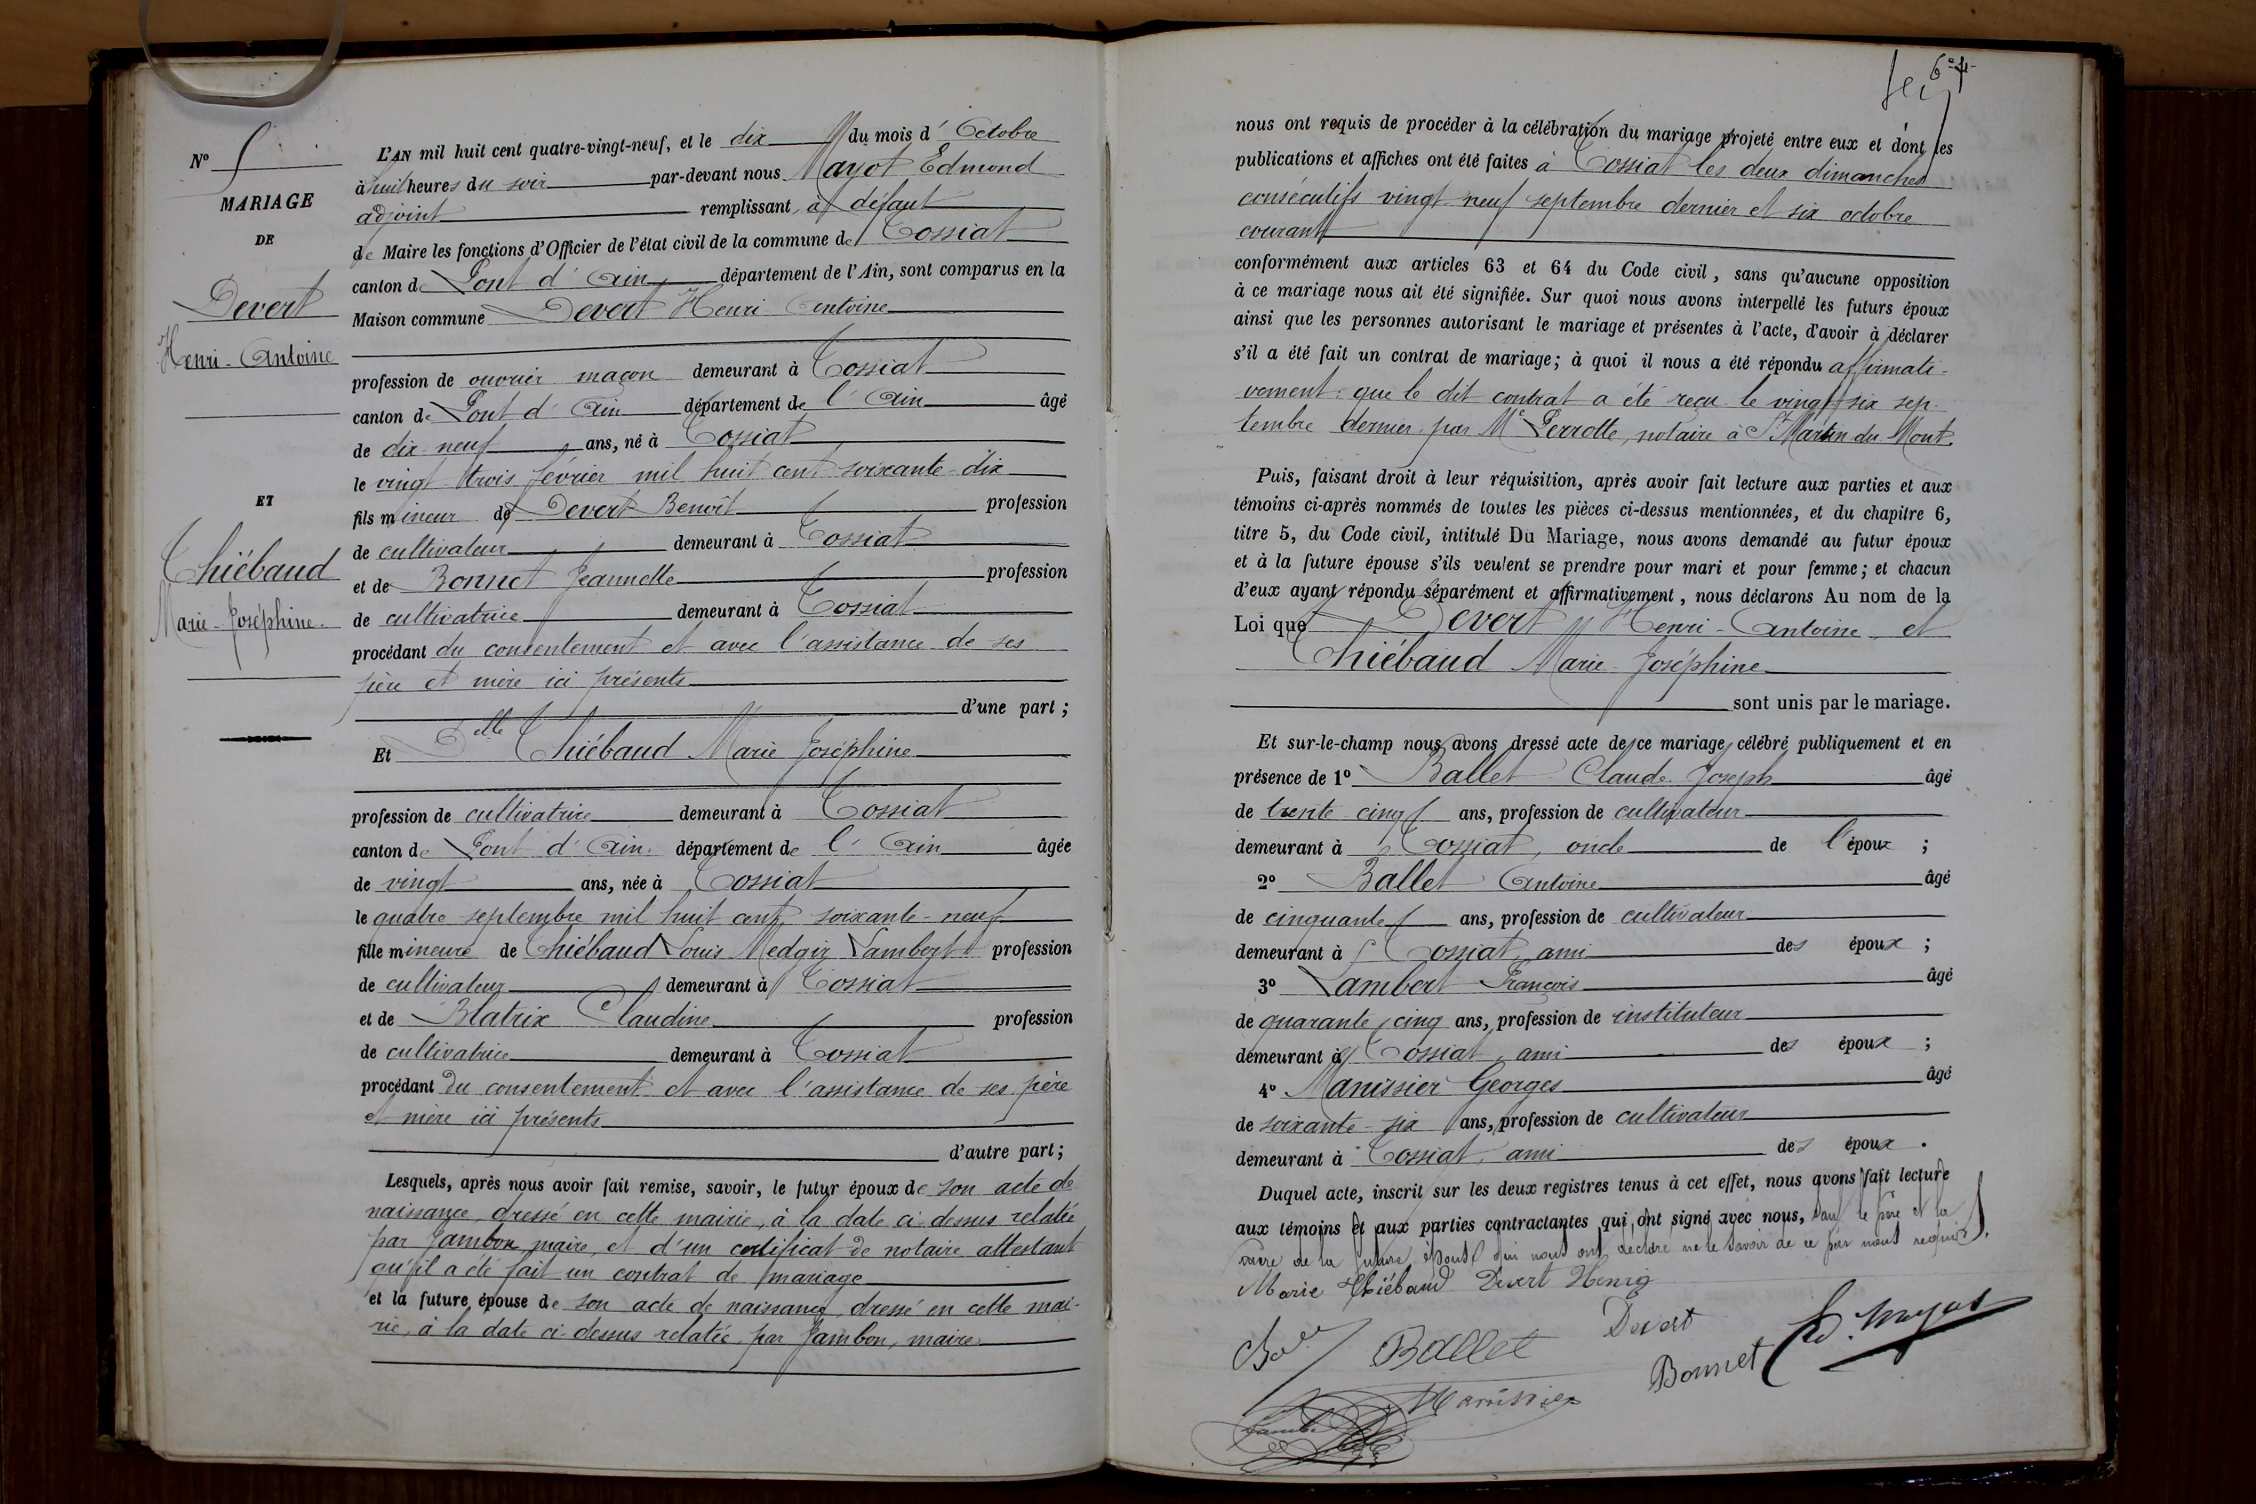 N° 5
MARIAGE
DE
Devert
Henri-Antoine
ET
Thiébaud
Marie-Joséphine.
L'AN mil huit cent quatre-vingt-neuf, et le dix du mois d'Octobre
à huit heures du soir par-devant nous Mayot Edmond
adjoint remplissant, à défaut
de Maire les fonctions d'Officier de l'état civil de la commune de Tossiat
canton de Pont d'Ain département de l'Ain, sont comparus en la
Maison commune Devert Henri Antoine
profession de ouvrier maçon demeurant à Tossiat
canton de Pont d'Ain département de l'Ain âgé
de dix-neuf ans, né à Tossiat
le vingt-trois février mil huit cent soixante-dix
fils mineur de Devert Benoît profession
de cultivateur demeurant à Tossiat
et de Bonnet Jeannette profession
de cultivatrice demeurant à Tossiat
procédant du consentement et avec l'assistance de ses
père et mère ici présents
d'une part ;
Et Delle Thiébaud Marie Joséphine
profession de cultivatrice demeurant à Tossiat
canton de Pont d'Ain. département de l'Ain âgée
de vingt ans, née à Tossiat
le quatre septembre mil huit cent soixante-neuf
fille mineure de Thiébaud Louis Lambert profession
de cultivateur demeurant à Tossiat
et de Blatrix Claudine profession
de cultivatrice demeurant à Tossiat
procédant du consentement et avec l'assistance de ses père
et mère ici présents
d'autre part ;
Lesquels, après nous avoir fait remise, savoir, le futur époux de son acte de
naissance, dressé en cette mairie, à la date ci-dessus relatée
par Jambon maire, et d'un certificat de notaire attestant
qu'il a été fait un contrat de mariage
et la future épouse de son acte de naissance, dressé en cette mai-
rie, à la date ci-dessus relatée par Jambon, maire
nous ont requis de procéder à la célébration du mariage projeté entre eux et dont les
publications et affiches ont été faites à Tossiat les deux dimanches
consécutifs vingt-neuf septembre dernier et six octobre
courant
conformément aux articles 63 et 64 du Code civil, sans qu'aucune opposition
à ce mariage nous ait été signifiée. Sur quoi nous avons interpellé les futurs époux
ainsi que les personnes autorisant le mariage et présentes à l'acte, d'avoir à déclarer
s'il a été fait un contrat de mariage ; à quoi il nous a été répondu affirmati-
vement : que le dit contrat a été reçu le vingt-six sep-
tembre dernier par Me Perrotte, notaire à St Martin du Mont.
Puis, faisant droit à leur réquisition, après avoir fait lecture aux parties et aux
témoins ci-après nommés de toutes les pièces ci-dessus mentionnées, et du chapitre 6,
titre 5, du Code civil, intitulé Du Mariage, nous avons demandé au futur époux
et à la future épouse s'ils veulent se prendre pour mari et pour femme ; et chacun
d'eux ayant répondu séparément et affirmativement, nous déclarons Au nom de la
Loi que Devert Henri-Antoine et
Thiébaud Marie-Joséphine
sont unis par le mariage.
Et sur-le-champ nous avons dressé acte de ce mariage célébré publiquement et en
présence de 1° Ballet Claude Joseph âgé
de trente cinq ans, profession de cultivateur
demeurant à Tossiat, oncle de l'époux ;
2° Ballet Antoine âgé
de cinquante ans, profession de cultivateur
demeurant à Tossiat, ami des époux ;
3° Lambert François âgé
de quarante cinq ans, profession de instituteur
demeurant à Tossiat, ami des époux ;
4° Manissier Georges âgé
de soixante-six ans, profession de cultivateur
demeurant à Tossiat, ami des époux.
Duquel acte, inscrit sur les deux registres tenus à cet effet, nous avons fait lecture
aux témoins et aux parties contractantes qui ont signé avec nous, sauf le père et la
mère de la future épouse qui nous ont déclaré ne le savoir de ce par nous requis.
Marie Thiébaud Devert Henri
Ballet Devert Ed. Mayot
Bonnet
Manissier